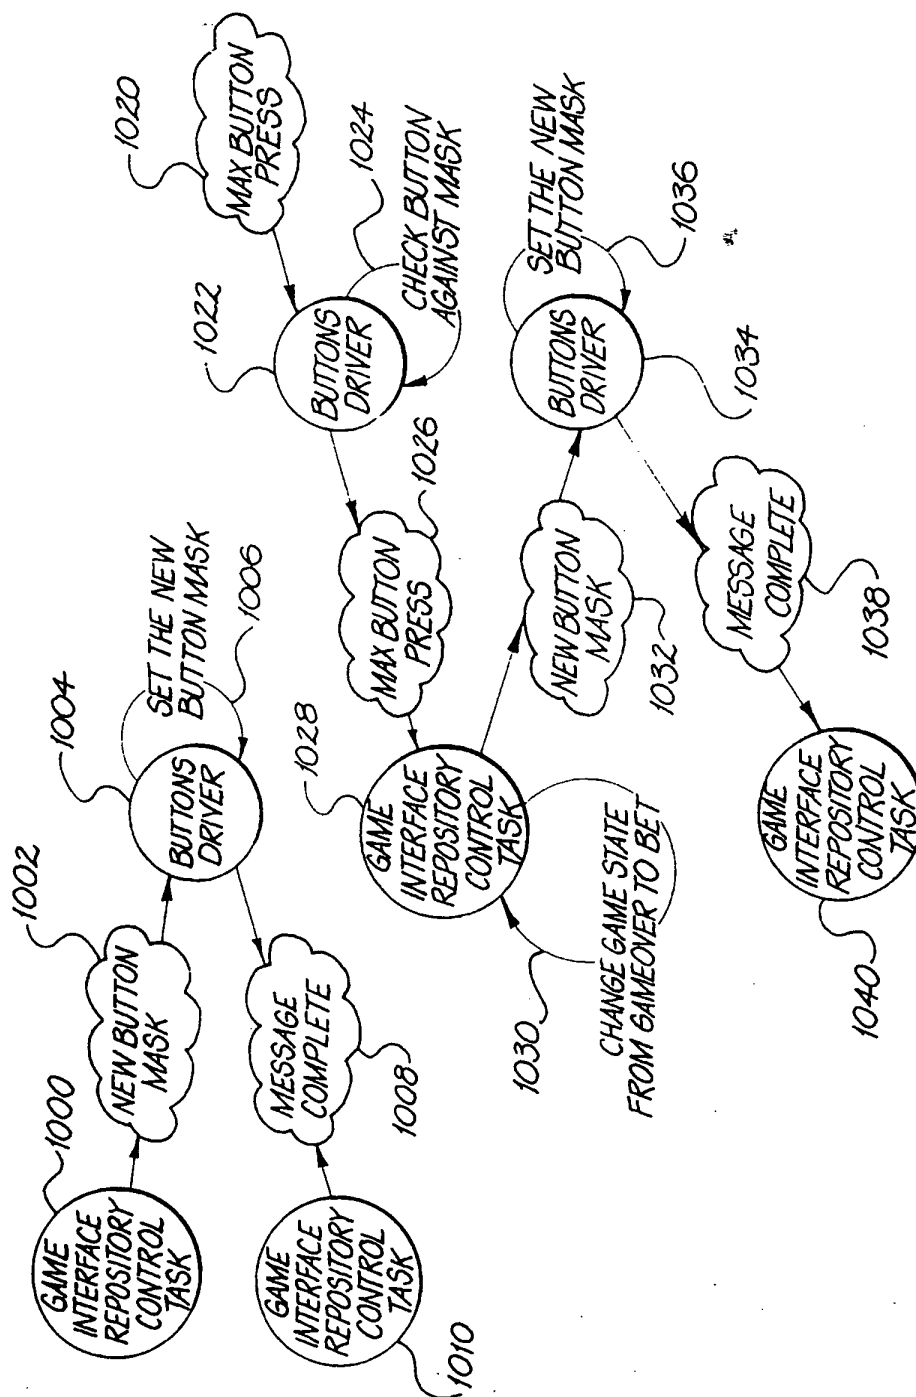 1000
GAME
INTERFACE
REPOSITORY
CONTROL
TASK
1002
NEW BUTTON
MASK
1004
BUTTONS
DRIVER
SET THE NEW
BUTTON MASK
1006
MESSAGE
COMPLETE
1008
GAME
INTERFACE
REPOSITORY
CONTROL
TASK
1010
1020
MAX BUTTON
PRESS
1022
BUTTONS
DRIVER
1024
CHECK BUTTON
AGAINST MASK
1026
MAX BUTTON
PRESS
1028
GAME
INTERFACE
REPOSITORY
CONTROL
TASK
1030
CHANGE GAME STATE
FROM GAMEOVER TO BET
NEW BUTTON
MASK
1032
BUTTONS
DRIVER
1034
SET THE NEW
BUTTON MASK
1036
MESSAGE
COMPLETE
1038
GAME
INTERFACE
REPOSITORY
CONTROL
TASK
1040